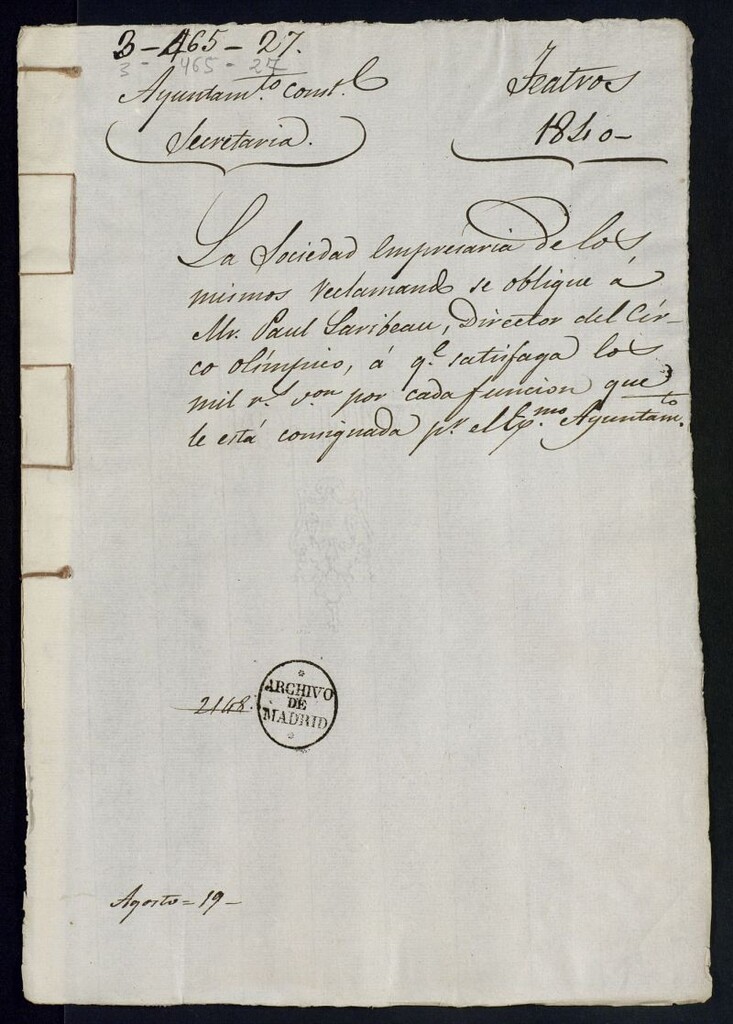 3-465-27.
3- 465-27
Ayuntam.to const.l
Secretaria.
Teatros
1840-
La Sociedad Empresaria de los
mismos reclamando se oblique á
Mr. Paul Laribeau, Director del Cír-
co olímpico, á q.e satisfaga los
mil r.s von por cada funcion que
le está consignada p.r el Ex.mo Ayuntam.to
2148.
ARCHIVO
DE
MADRID
Agosto = 19 -